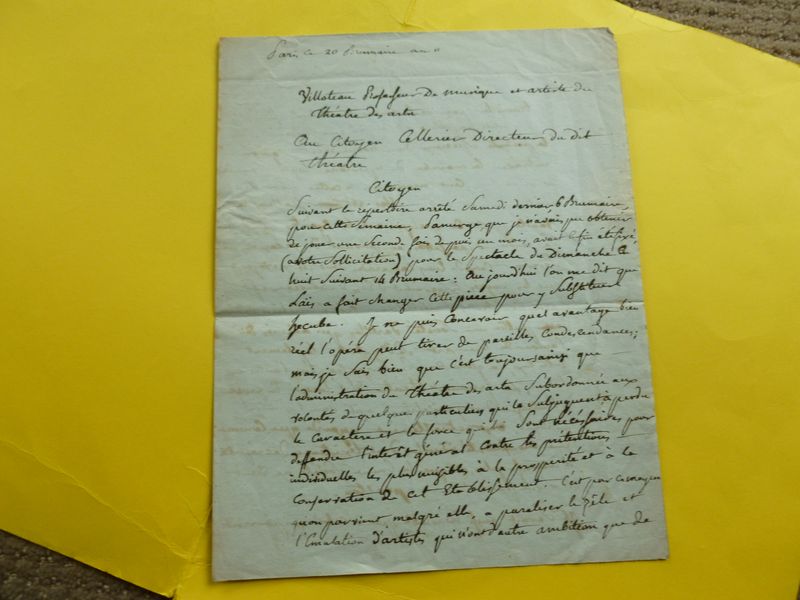 Paris le 20 Brumaire an 11
Villoteau Professeur De musique et artiste du
Théatre des arts
Au Citoyen Cellerier Directeur du dit
théatre
Citoyen
Suivant le répertoire arrêté Samedi dernier 6 Brumaire,
pour cette Semaine, Panurge que je n'avais pu obtenir
de jouer une Seconde fois depuis un mois, avait enfin été fixé
(a votre Sollicitation) pour le Spectacle du Dimanche
huit Suivant 14 Brumaire: Aujourdhui l'on me dit que
Laïs a fait changer cette pièce pour y Substituer
hecube. Je ne puis Concevoir quel avantage bien
réel l'opéra peut tirer de pareilles Condescendances;
mais je Sais bien que c'est toujours ainsi que
l'administration du Théatre des arts Subordonnée aux
volontés de quelques particuliers qui la Subjuguent à perdu
le Caractere et la force qui Sont nécéssaires pour
deffendre l'interêt général Contre les prétentions
individuelles les plus nuisibles à la prosperité et à la
Conservation de cet Etablissement. C'est par ce moyen
qu'on parvient, malgré elle, a paraliser le Zèle et
l'Emulation d'artistes qui n'ont d'autre ambition que de